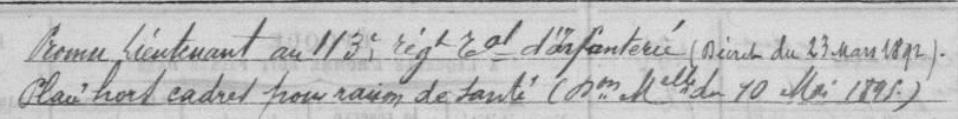 Promu Lieutenant au 113e régt Tal d'Infanterie (Décret du 23 Mars 1892).
Placé hors cadres pour raison de santé (Don Melle du 10 Mai 1895.)